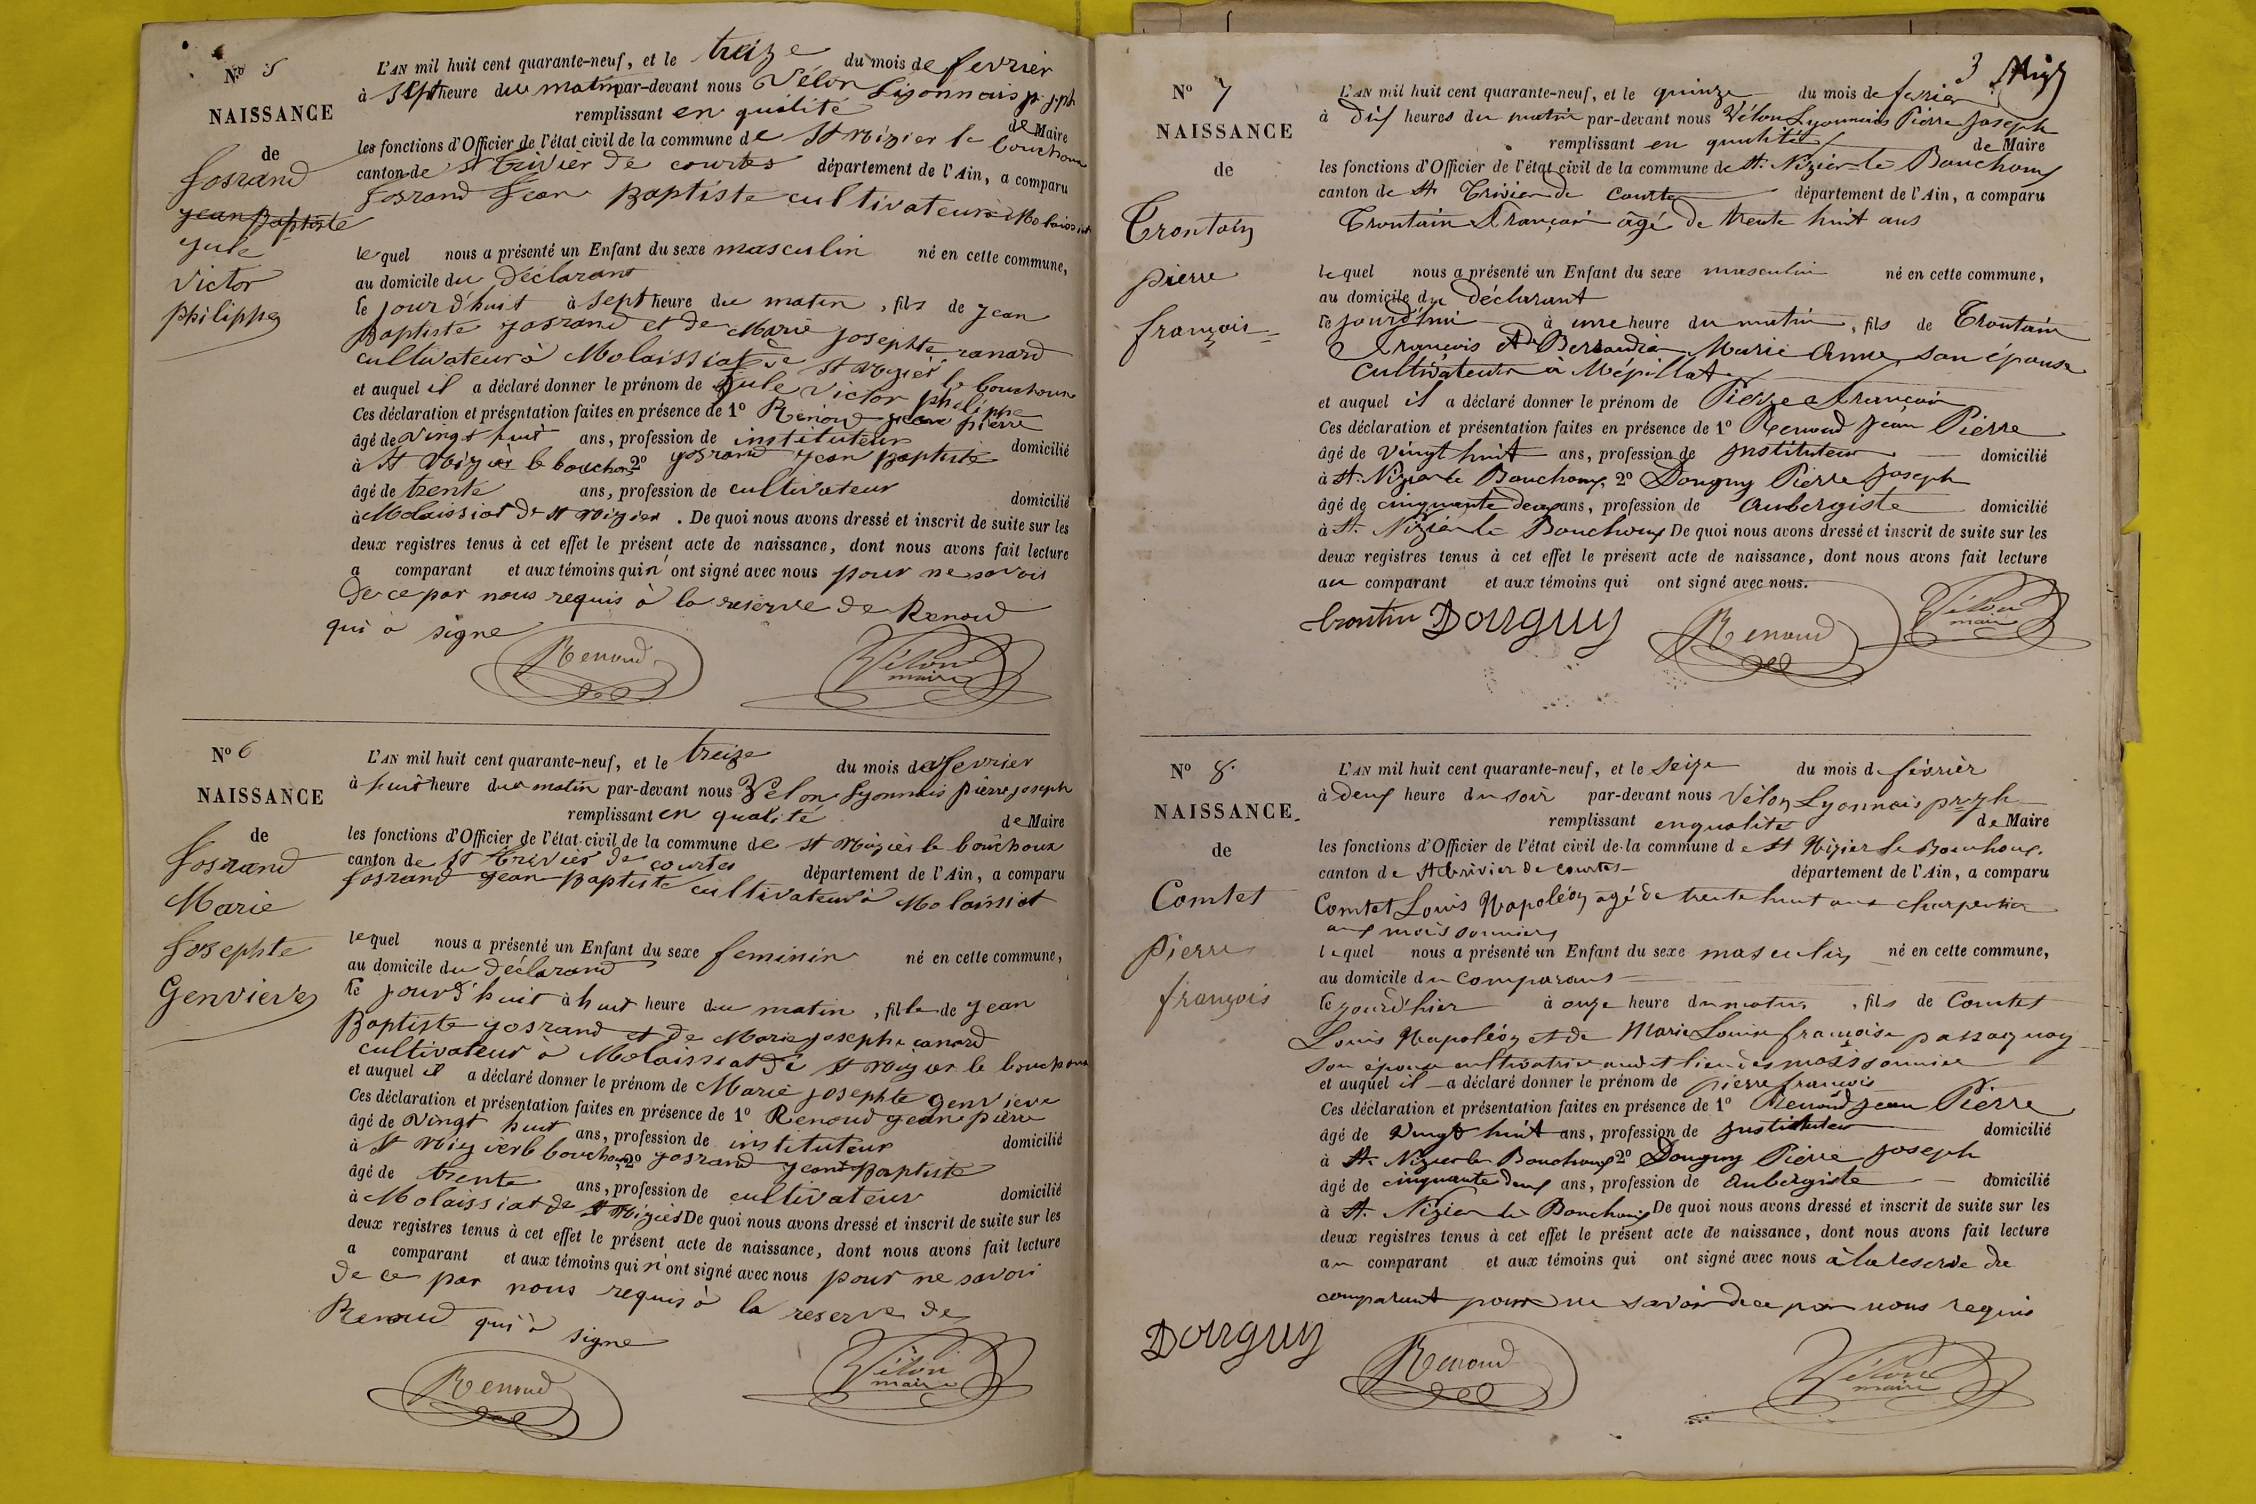 N.º 5
NAISSANCE
de
Josrand
jean Baptiste
jule
victor
philippe
L'AN mil huit cent quarante-neuf, et le treize du mois de fevrier
à sept heure du matin par-devant nous Vélon Lyonnais p. jph
remplissant en qualité de Maire
les fonctions d'Officier de l'état civil de la commune de St Nizier le bouchoux
canton de St trivier de courtes département de l'Ain, a comparu
Josrand Jean Baptiste cultivateur à Molaissiat
lequel nous a présenté un Enfant du sexe masculin né en cette commune,
au domicile du Déclarant
le jour d'huit à sept heure du matin, fils de jean
Baptiste josrand et de Marie josephte canard
cultivateur à Molaissiat de St Nizier le bouchoux
et auquel il a déclaré donner le prénom de jule victor philippe
Ces déclaration et présentation faites en présence de 1º Renoud jean pierre
âgé de vingt huit ans, profession de instituteur domicilié
à St Nizier le bouchoux 2º josrand jean baptiste
âgé de trente ans, profession de cultivateur domicilié
à Molaissiat de St Nizier. De quoi nous avons dressé et inscrit de suite sur les
deux registres tenus à cet effet le présent acte de naissance, dont nous avons fait lecture
a comparant et aux témoins qui n'ont signé avec nous pour ne savoir
de ce par nous requis à la reserve de Renoud
qui a signe
Renoud Vélon
maire
Nº 6
NAISSANCE
de
Josrand
Marie
Josephte
Genvieve
L'AN mil huit cent quarante-neuf, et le treize du mois de fevrier
à huit heure du matin par-devant nous Vélon Lyonnais pierre joseph
remplissant en qualité de Maire
les fonctions d'Officier de l'état civil de la commune de St Nizier le bouchoux
canton de St trivier de courtes département de l'Ain, a comparu
Josrand jean Baptiste cultivateur à Molaissiat
lequel nous a présenté un Enfant du sexe feminin né en cette commune,
au domicile du déclarand
le jour d'huit à huit heure du matin, fille de jean
Baptiste josrand et de Marie josephe canard
cultivateur à Molaissiat de St Nizier le bouchoux
et auquel il a déclaré donner le prénom de Marie josephte genvieve
Ces déclaration et présentation faites en présence de 1º Renoud jean pierre
âgé de vingt huit ans, profession de instituteur domicilié
à St Nizier le bouchoux 2º josrand jean Baptiste
âgé de trente ans, profession de cultivateur domicilié
à Molaissiat de St Nizier De quoi nous avons dressé et inscrit de suite sur les
deux registres tenus à cet effet le présent acte de naissance, dont nous avons fait lecture
a comparant et aux témoins qui n'ont signé avec nous pour ne savoir
de ce par nous requis à la reserve de
Renoud qui a signe
Renoud Vélon
maire
3
Nº 7
NAISSANCE
de
Trontain
pierre
françois
L'AN mil huit cent quarante-neuf, et le quinze du mois de fevrier
à dix heures du matin par-devant nous Vélon Lyonnais Pierre Joseph
remplissant en qualité de Maire
les fonctions d'Officier de l'état civil de la commune de St. Nizier-le Bouchoux
canton de St Trivier de Courtes département de l'Ain, a comparu
Trontain François âgé de trente huit ans
lequel nous a présenté un Enfant du sexe masculin né en cette commune,
au domicile du déclarant
le jourd'hui à une heure du matin, fils de Trontain
François et de Bernardin Marie Anne son épouse
cultivateurs à Mépillat
et auquel il a déclaré donner le prénom de Pierre François
Ces déclaration et présentation faites en présence de 1º Renoud Jean Pierre
âgé de vingt huit ans, profession de Instituteur domicilié
à St. Nizier le Bouchoux, 2º Douguy Pierre Joseph
âgé de cinquante deux ans, profession de Aubergiste domicilié
à St. Nizier le Bouchoux De quoi nous avons dressé et inscrit de suite sur les
deux registres tenus à cet effet le présent acte de naissance, dont nous avons fait lecture
au comparant et aux témoins qui ont signé avec nous.
trontin Douguy Renoud Vélon
maire
Nº 8.
NAISSANCE.
de
Comtet
pierre
françois
L'AN mil huit cent quarante-neuf, et le seize du mois de février
à deux heure du soir par-devant nous Vélon Lyonnais pre jh
remplissant en qualité de Maire
les fonctions d'Officier de l'état civil de la commune de St Nizier le Bouchoux.
canton de St trivier de courtes département de l'Ain, a comparu
Comtet Louis Napoléon agé de trente huit ans charpentier
aux moissonniers
lequel nous a présenté un Enfant du sexe masculin né en cette commune,
au domicile du comparant
le jourd'hier à onze heure du matin, fils de Comtet
Louis Napoléon et de Marie Louise françoise passaquay
son épouse cultivatrice audit lieu des moissonnier
et auquel il a déclaré donner le prénom de pierre françois
Ces déclaration et présentation faites en présence de 1º Renoud Jean Pierre
âgé de vingt huit ans, profession de Instituteur domicilié
à St. Nizier le Bouchoux 2º Douguy Pierre Joseph
âgé de cinquante deux ans, profession de Aubergiste domicilié
à St. Nizier le Bouchoux De quoi nous avons dressé et inscrit de suite sur les
deux registres tenus à cet effet le présent acte de naissance, dont nous avons fait lecture
au comparant et aux témoins qui ont signé avec nous à la reserve du
comparant pour ne savoir de ce par nous requis
Douguy Renoud Vélon
maire